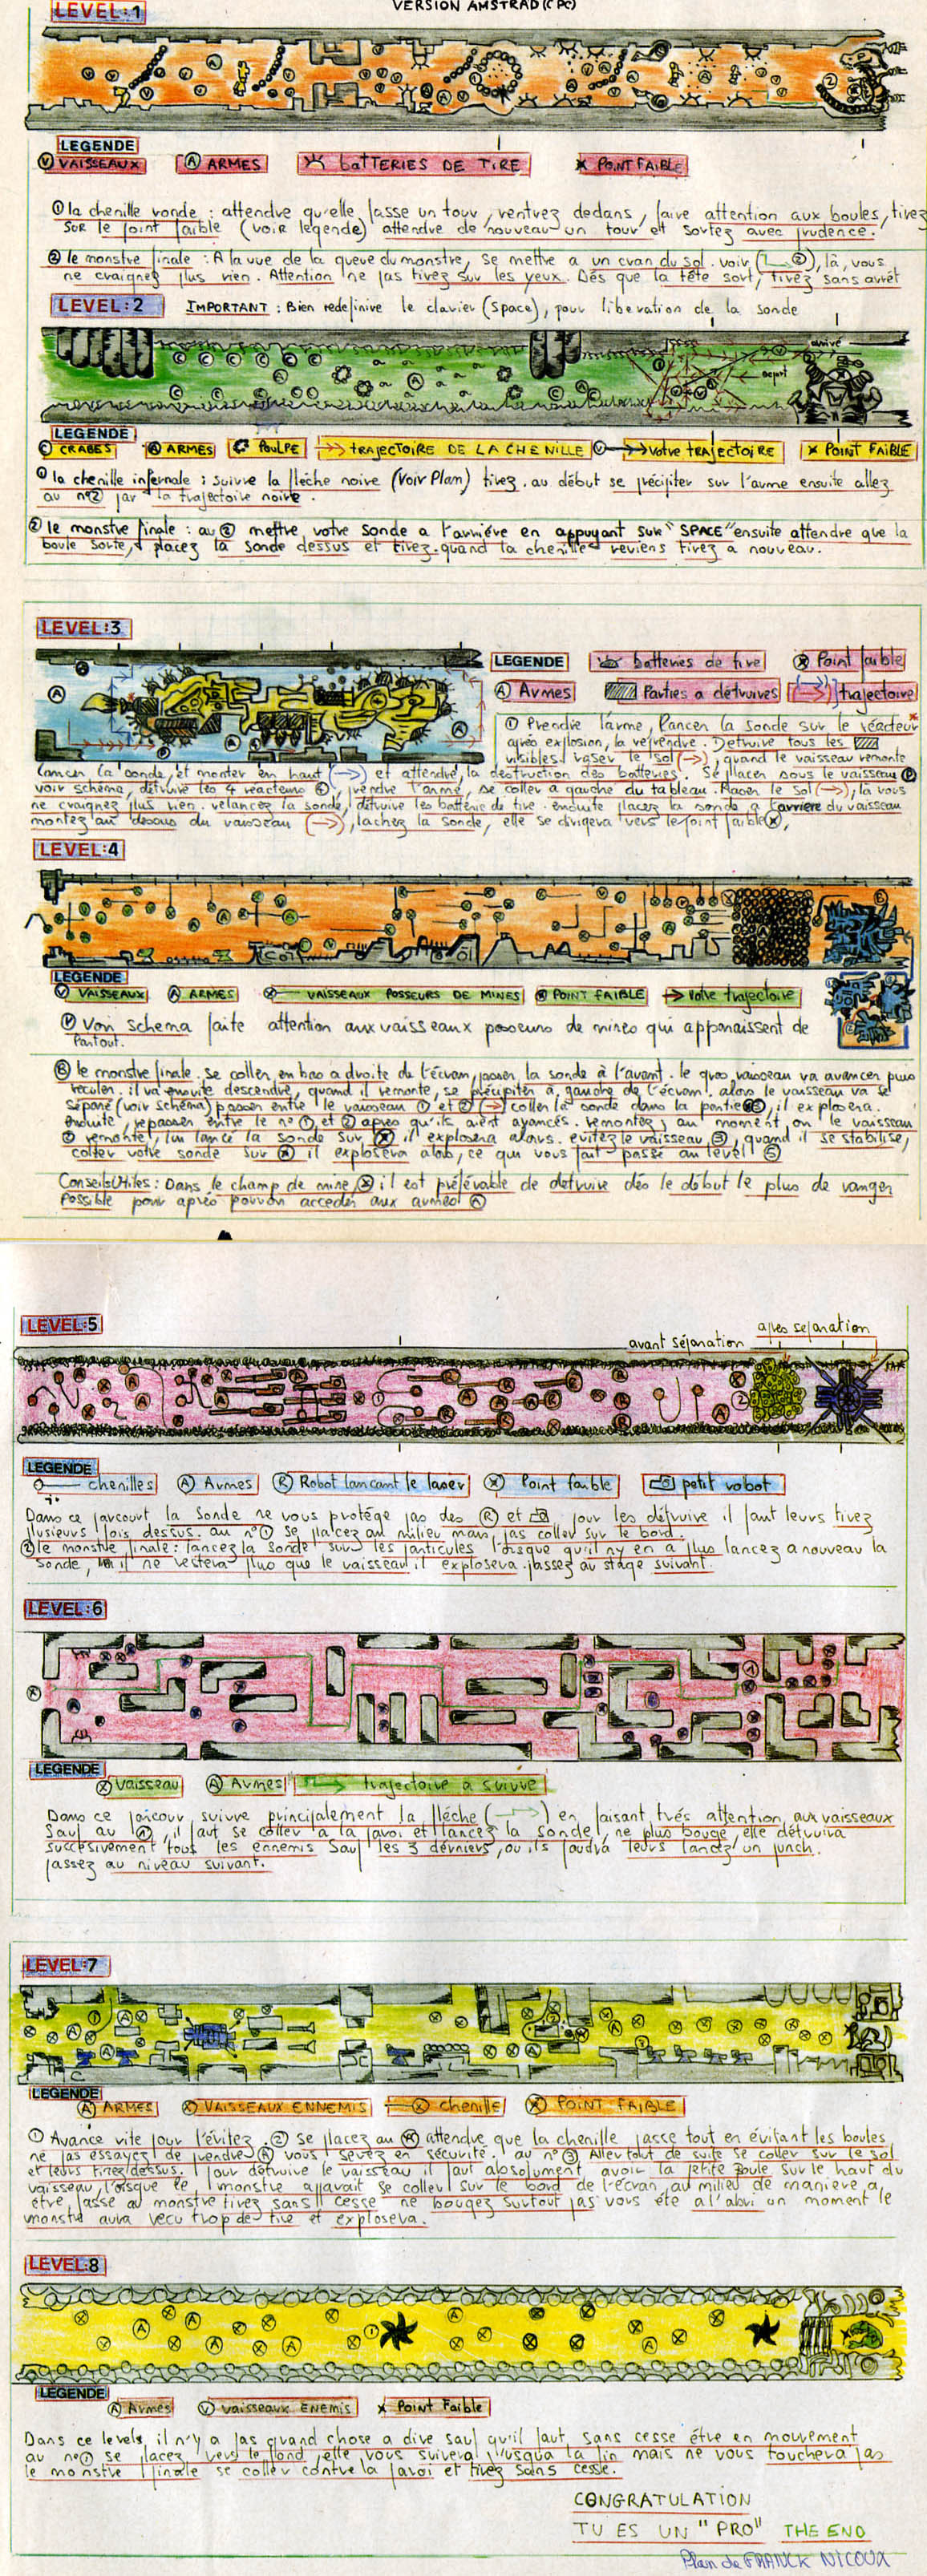 VERSION AMSTRAD (CPC)
LEVEL:1
LEGENDE
V VAISSEAUX A ARMES bATTERIES DE TIRE POINT FAIBLE
① la chenille ronde : attendre qu'elle fasse un tour, rentrez dedans, faire attention aux boules, tirez
SUR le point faible (voir légende) attendre de nouveau un tour et sortez avec prudence.
② le monstre finale : A la vue de la queue du monstre, se mettre a un cran du sol. voir ( ②), là, vous
ne craignez plus rien. Attention ne pas tirez sur les yeux. Dés que la tête sort, tirez sans arrêt
LEVEL:2 IMPORTANT : Bien redefinire le clavier (space), pour liberation de la sonde
arrivé
depart
LEGENDE
C CRABES A ARMES POULPE TRAJECTOIRE DE LA CHENILLE votre TRAJECTOIRE POINT FAIBLE
① la chenille infernale : suivre la flèche noire (Voir Plan) tirez. au début se précipiter sur l'arme ensuite allez
au n°② par la trajectoire noire.
② le monstre finale : au ② mettre votre sonde a l'arriére en appuyant sur "SPACE" ensuite attendre que la
boule sorte, placez la sonde dessus et tirez. quand la chenille reviens tirez a nouveau.
LEVEL:3
LEGENDE batteries de tire Point faible
A Armes Parties a détruires trajectoire
① Prendre l'arme, lancer la sonde sur le réacteur
aprés explosion, la reprendre. Detruire tous les
visibles. raser le sol (→), quand le vaisseau remonte
lancer la sonde, et monter en haut (→) et attendre, la destruction des batteries. Se placer sous le vaisseau
voir schéma, détruire les 4 reacteurs, prendre l'arme, se coller a gauche du tableau. Raser le sol (→), là vous
ne craignez plus rien. relancez la sonde, détruire les batterie de tire. ensuite placez la sonde a l'arriere du vaisseau
montez au dessus du vaisseau (→), lachez la sonde, elle se dirigera vers le point faible,
LEVEL:4
LEGENDE
V VAISSEAUX A ARMES VAISSEAUX POSSEURS DE MINES POINT FAIBLE votre trajectoire
Voir schema faite attention aux vaisseaux poseurs de mines qui apparaissent de
Partout.
le monstre finale. se coller en bas a droite de l'écran, poser la sonde à l'avant. le gros vaisseau va avancer puis
reculer. il va ensuite descendre, quand il remonte, se précipiter à gauche de l'écran. alors le vaisseau va se
séparé (voir schéma) passer entre le vaisseau ① et ② (→) coller la sonde dans la partie, il explosera.
Ensuite, repasser entre le n° ① et ② aprés qu'ils aient avancés. remontez, au moment, ou le vaisseau
② remonte, lancé la sonde sur il explosera alors. evitez le vaisseau ③, quand il se stabilise,
coller votre sonde sur il explosera alors, ce qui vous fait passé au level ⑤
Conseils Utiles : Dans le champ de mine, il est préférable de detruire dés le début le plus de ranger
Possible pour aprés pouvoir acceder aux armes A
LEVEL:5
avant séparation
apres separation
LEGENDE
chenilles A Armes R Robot lancant le laser Point faible petit robot
Dans ce parcourt la Sonde ne vous protége pas des R et, pour les détruire il faut leurs tirez
plusieurs fois dessus. au n°① se placez au milieu mais pas coller sur le bord.
② le monstre finale : lancez la sonde sur les particules lorsque qu'il ny en a plus lancez a nouveau la
sonde, il ne restera plus que le vaisseau il explosera. passez au stage suivant.
LEVEL:6
LEGENDE
vaisseau A Armes trajectoire a suivre
Dans ce parcour suivre principalement la fléche (→) en faisant trés attention aux vaisseaux
Sauf au ①, il faut se coller a la paroi et lancez la sonde, ne plus bouge, elle détruira
succesivement tous les ennemis Sauf les 3 dérniers, ou ils faudra leurs lancez un punch.
passez au niveau suivant.
LEVEL:7
LEGENDE
A ARMES VAISSEAUX ENNEMIS chenille POINT FAIBLE
① Avance vite pour l'évitez. ② se placez au attendre que la chenille passe tout en évitant les boules
ne pas essayez de prendre A vous serez en sécurité. au n°③ Aller tout de suite se coller sur le sol
et leurs tirez dessus. Pour détruire le vaisseau il faut absolument avoir la petite boule sur le haut du
vaisseau, lorsque le monstre apparait se coller sur le bord de l'écran au milieu de maniere a
être fasse au monstre tirez sans cesse ne bougez surtout pas vous été a l'abri un moment le
monstre aura vecu trop de tire et explosera.
LEVEL:8
LEGENDE
A Armes V vaisseaux Enemis Point Faible
Dans ce levels, il n'y a pas grand chose a dire sauf qu'il faut, sans cesse étre en mouvement
au n°① se placez, vers le fond, elle vous suivera jusqua la fin mais ne vous touchera pas
le monstre finale se coller contre la paroi et tirez sans cesse.
CONGRATULATION
TU ES UN "PRO" THE END
Plan de FRANCK NICOUX